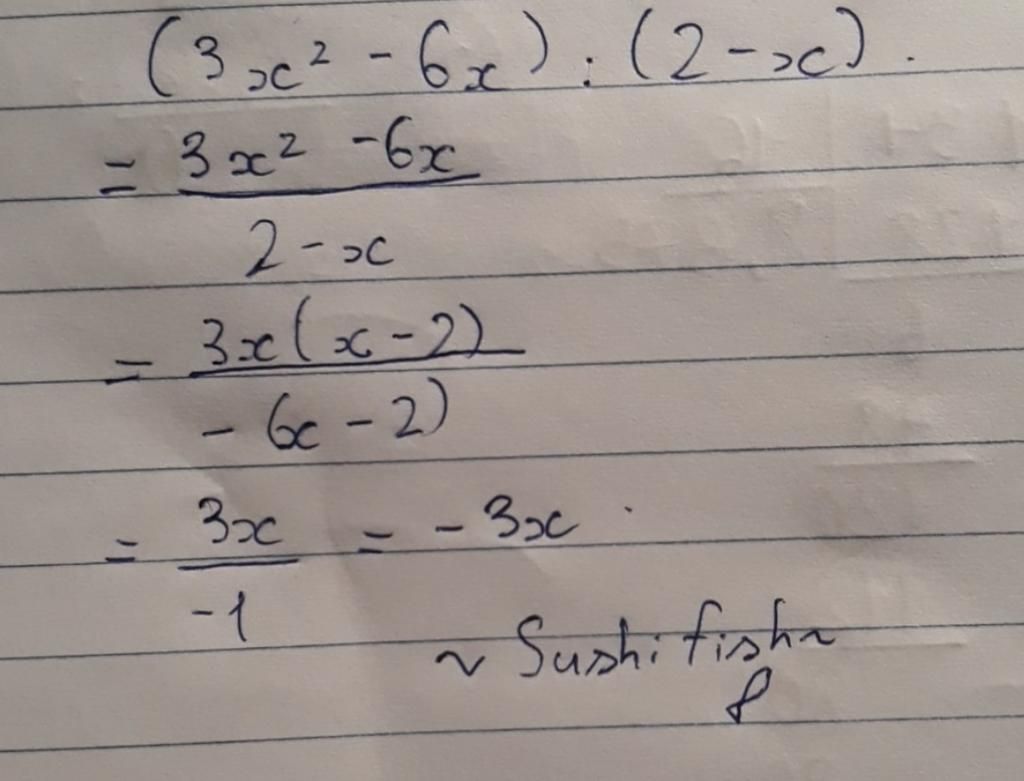 (3x² - 6x) : (2 - x).
= 3x² - 6x
2 - x
= 3x(x - 2)
- (x - 2)
= 3x = - 3x.
-1
~ Sushi fish ~